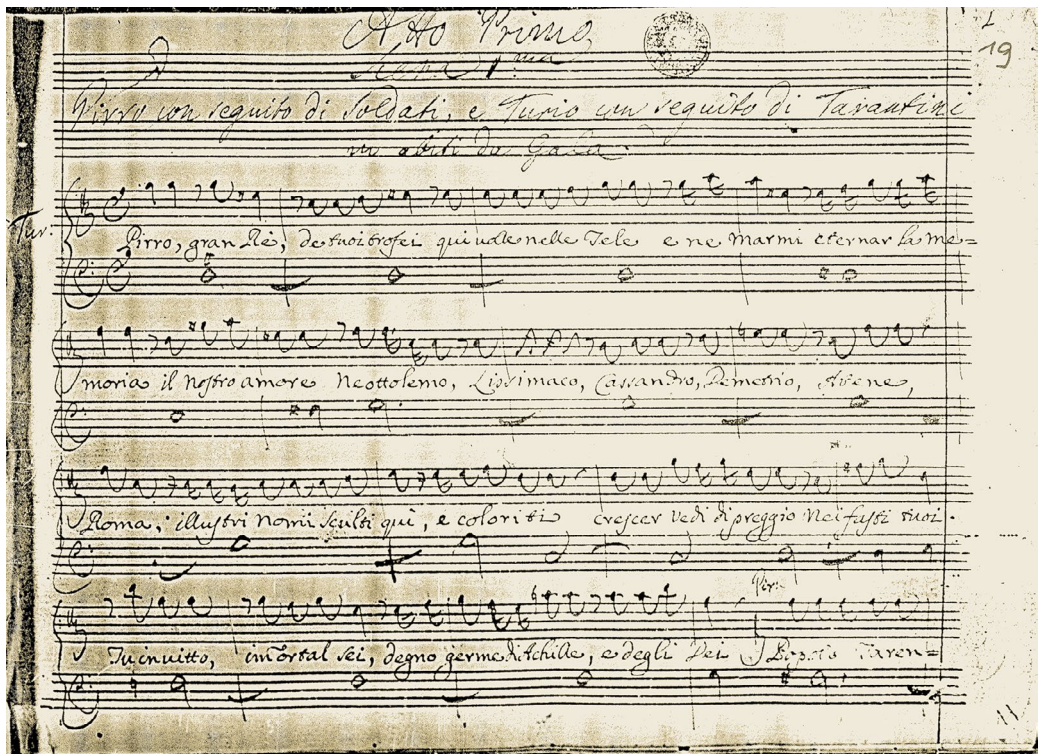 Atto Primo
Scena Pma
19
Pirro con seguito di Soldati, e Turio con seguito di Tarantini
in abiti da Gala
Tur:
Pirro, gran Rè, de tuoi trofei qui volle nelle Tele e ne Marmi eternar la me=
moria il nostro amore Neottolemo, Lissimaco, Cassandro, Demetrio, Atene,
Roma, illustri Nomi sculti qui, e coloriti crescer vedi di preggio Nei fasti tuoi.
Pir:
Tu invitto, immortal sei, degno germe di Achille, e degli Dei Taren=